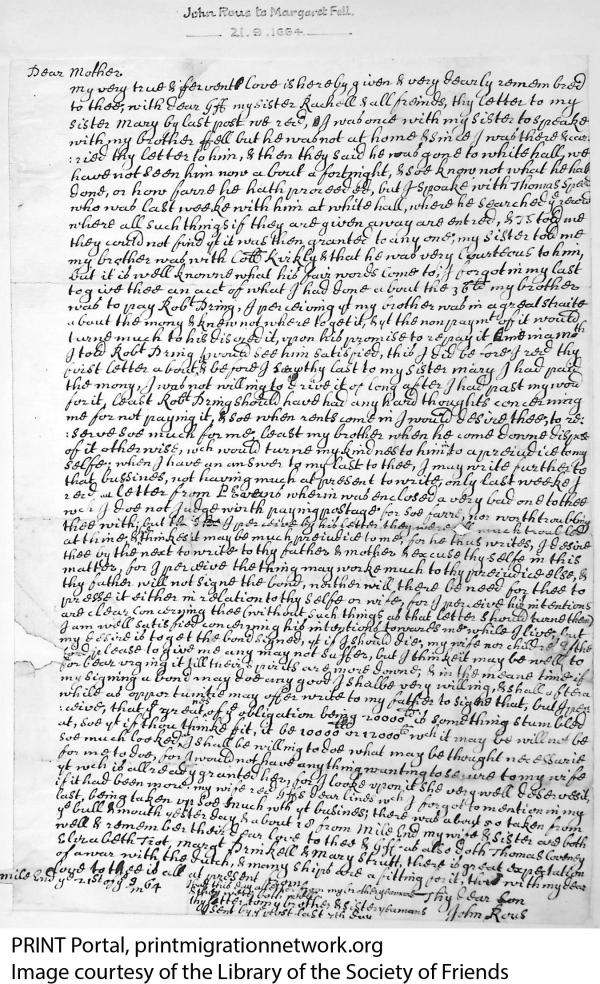 John Rous to Margaret Fell.
21. 9. 1664.
Dear Mother
My very true & fervent Love is hereby given & very dearly remembred
to thee, with dear Gff my sister Rachell & all freinds, thy letter to my
sister Mary by last post we recd, I was once with my sister to speake
with my brother ffell but he was not at home & since I was there & car:
:ried thy letter to him, & then they said he was gone to whitehall, we
have not seen him now about a fortnight, & soe know not what he hath
done, or how farre he hath proceeded, but I spoake with Thomas
who was last weeke with him at whitehall, where he searched
where all such things if they are given away are entred, & told me
they could not find yt it was then granted to any one; my sister told me
my brother was with Kirkly & that he was very Courteous to him,
but it is well knowne what his fair words come to; I forgot in my last
to give thee an acct of what I had done about the my brother
was to pay Robt Dring, I perceiving yt my brother was in a great straite
about the mony & knew not where to get it, & yt the nonpaymt of it would
turne much to his discredit, upon his promise to repay it
I told Robt Dring I would see him satisfied, this I did before I recd thy
first letter about & before I saw thy last to my sister mary I had paid
the mony, I was not willing to drive it of long after I had past my word
for it, least Robt Dring should have had any hard thoughts concerning
me for not paying it, & soe when rents come in I would desire thee to re:
:serve soe much for me, least my brother when he come downe dispose
of it otherwise, wch would turne my kindness to him to a prejudice to my
selfe; when I have an answer to my last to thee, I may write further to
that bussines, not having much at present to write, only last weeke I
recd a letter from wherin was enclosed a very bad one to thee
wch I doe not Judge worth paying postage for soe farre, nor worth troubling
thee with, but I perceive by his letter they were much troubled
at time, & thinkes it may be much prejudice to me, for he thus writes, I desire
thee by the next to write to thy father & mother & excuse thy selfe in this
matter, for I perceive the thing may worke much to thy prejudice else, &
thy father will not signe the bond, neither will there be need for thee to
presse it either in relation to thy selfe or wife, for I perceive his intentions
are clear concerning thee (without such things as that letter should turne them)
I am well satisfied concerning his intentions towards me while I live, but
my desire is to get the bond signed, yt if I should die, my wife nor children if the
Lord please to give me any may not suffer, but I thinke it may be well to
forbear urging it till their spirits are more downe, & in the meane time if
my signing a bond may doe any good I shalbe very willing, & shall after a
while as opportunitie may offer write to my father to signe that, but I per:
:ceive, that ye greatnes of ye obligation being 20000 is something stumbled
at, soe yt if thou thinke fit, it be 10000 or 12000 wch it may be will not be
soe much looked, I shall be willing to doe what may be thought necessarie
for me to doe, for I would not have any thing wanting to secure to my wife
yt wch is allready granted her, for I looke upon it she very well deserves it,
if it had been more. my wife recd Gffs dear lines wch I forgot to mention in my
last, being taken up soe much with yt busines; there was about 20 taken from
ye bull & mouth yesterday & about 18 from Mile End my wife & sister are both
well & remember their dear love to thee & Gff as also doth Thomas Coveney
Elizabeth Trot, Margt Drinkell & Mary Strutt, there is great expectation
of a war with the Dutch, & many ships are a fitting for it, with my dear
love to thee is all at present from Thy Dear Son
mile End ye 21st of ye 9 m 64 John Rous
thy letter to my brother & sister yeamans
I sent by ye post last 7th day
PRINT Portal, printmigrationnetwork.org
Image courtesy of the Library of the Society of Friends